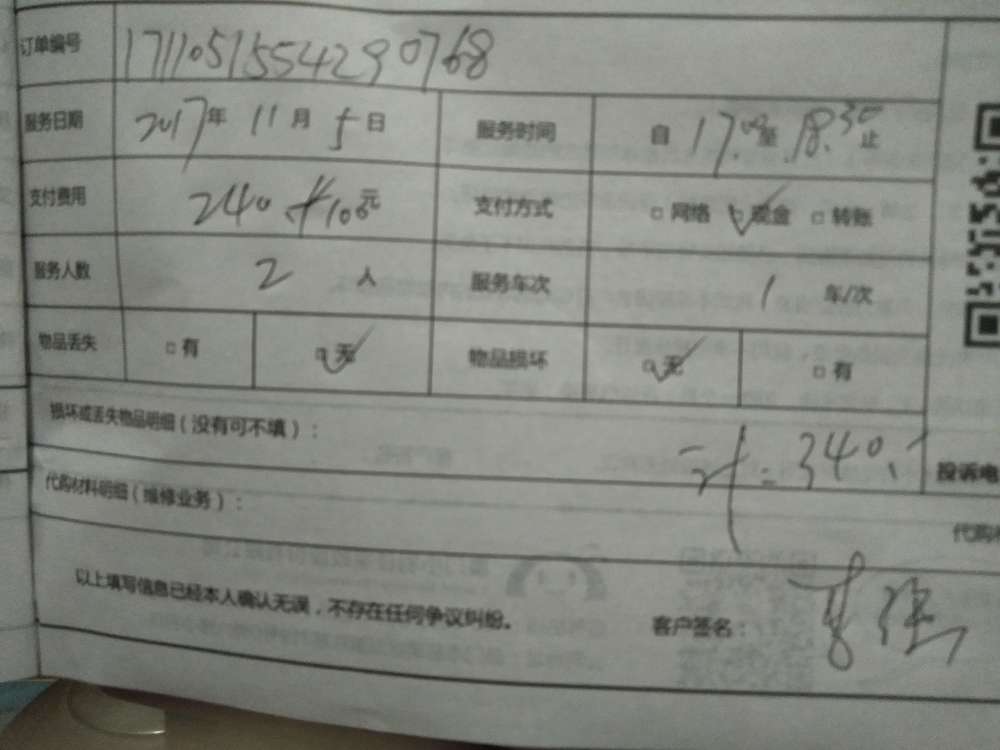 订单编号 1711051554290768
服务日期 2017年 11月 5日 服务时间 自 17.00至.18.30止
支付费用 240.+100元 支付方式 □网络 □现金 □转账
服务人数 2 人 服务车次 1 车/次
物品丢失 □有 □无 物品损坏 □无 □有
损坏或丢失物品明细(没有可不填):
计:340.
投诉电
代购材料明细(维修业务):
代购
以上填写信息已经本人确认无误,不存在任何争议纠纷。 客户签名: